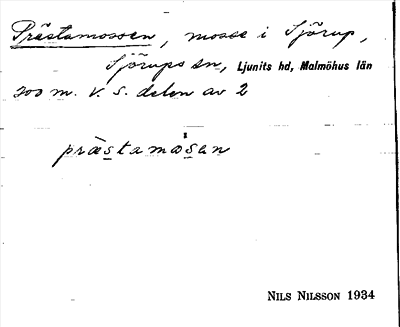 Prästamossen, mosse i Sjörup,
Sjörups sn, Ljunits hd, Malmöhus län
200 m. V. S. delen av 2
præstamosen
NILS NILSSON 1934